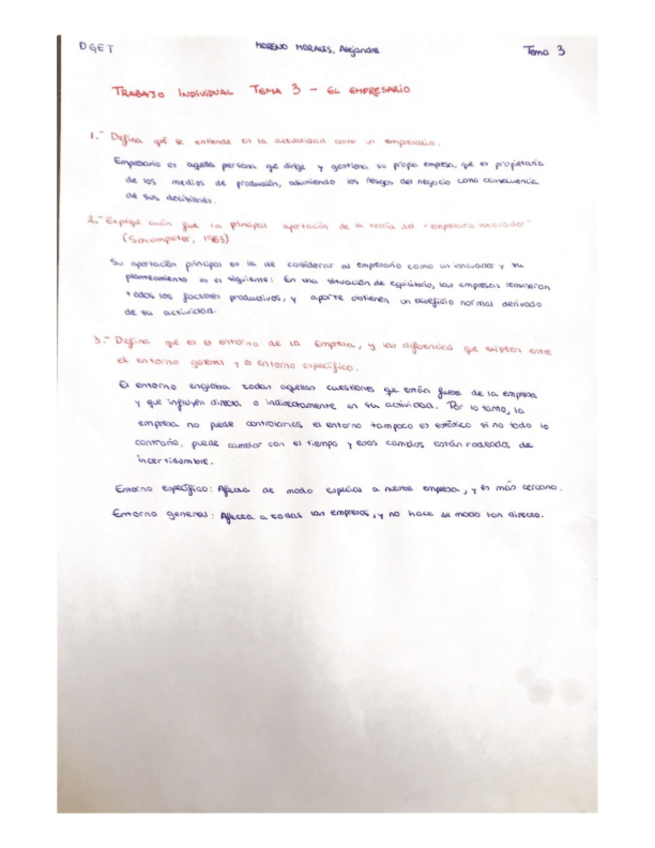 DGET MORENO MORALES, Alejandra Tema 3
TRABAJO INDIVIDUAL TEMA 3 - EL EMPRESARIO
1.- Defina qué se entiende en la actualidad como un empresario.
Empresario es aquella persona que dirige y gestiona su propia empresa, que es propietaria
de los medios de producción, asumiendo los riesgos del negocio como consecuencia
de sus decisiones.
2.- Explique cuál fue la principal aportación de la teoría del "empresario innovador"
(Schumpeter, 1963)
Su aportación principal es la de considerar al empresario como un innovador y su
planteamiento es el siguiente: En una situación de equilibrio, las empresas remuneran
todos los factores productivos, y aparte obtienen un beneficio normal derivado
de su actividad.
3.- Defina qué es el entorno de la empresa, y las diferencias que existen entre
el entorno general y el entorno específico.
El entorno engloba todas aquellas cuestiones que están fuera de la empresa
y que influyen directa o indirectamente en su actividad. Por lo tanto, la
empresa no puede controlarlas, el entorno tampoco es estático si no todo lo
contrario, puede cambiar con el tiempo y esos cambios están rodeados de
incertidumbre.
Entorno específico: Afecta de modo especial a nuestra empresa, y es más cercano.
Entorno general: Afecta a todas las empresas, y no hace de modo tan directo.